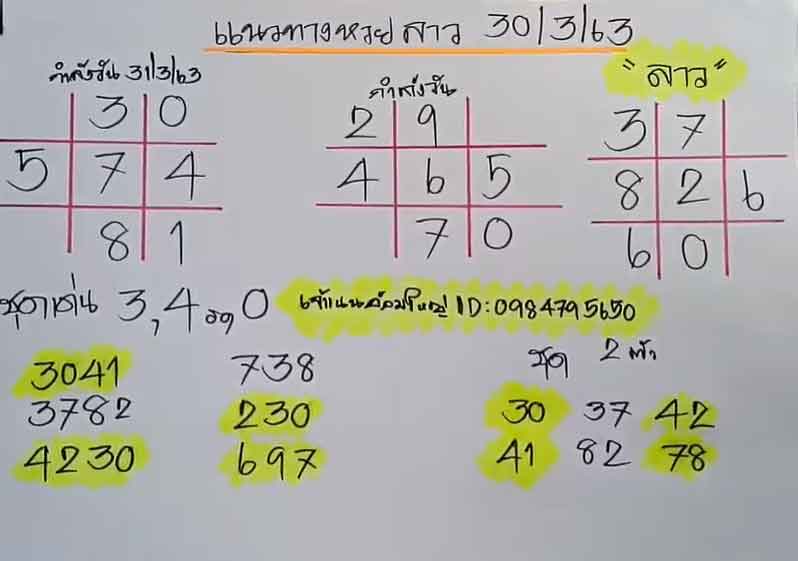 แนวทางหวยลาว 30/3/63
กำลังวัน 31/3/63
3 0
5 7 4
8 1
กำลังวัน
2 9
4 6 5
7 0
"ลาว"
3 7
8 2 6
6 0
ชุดเด่น 3,4 รอง 0
ID:0984795650
3041 738
3782 230
4230 697
ชุด 2 ตัว
30 37 42
41 82 78